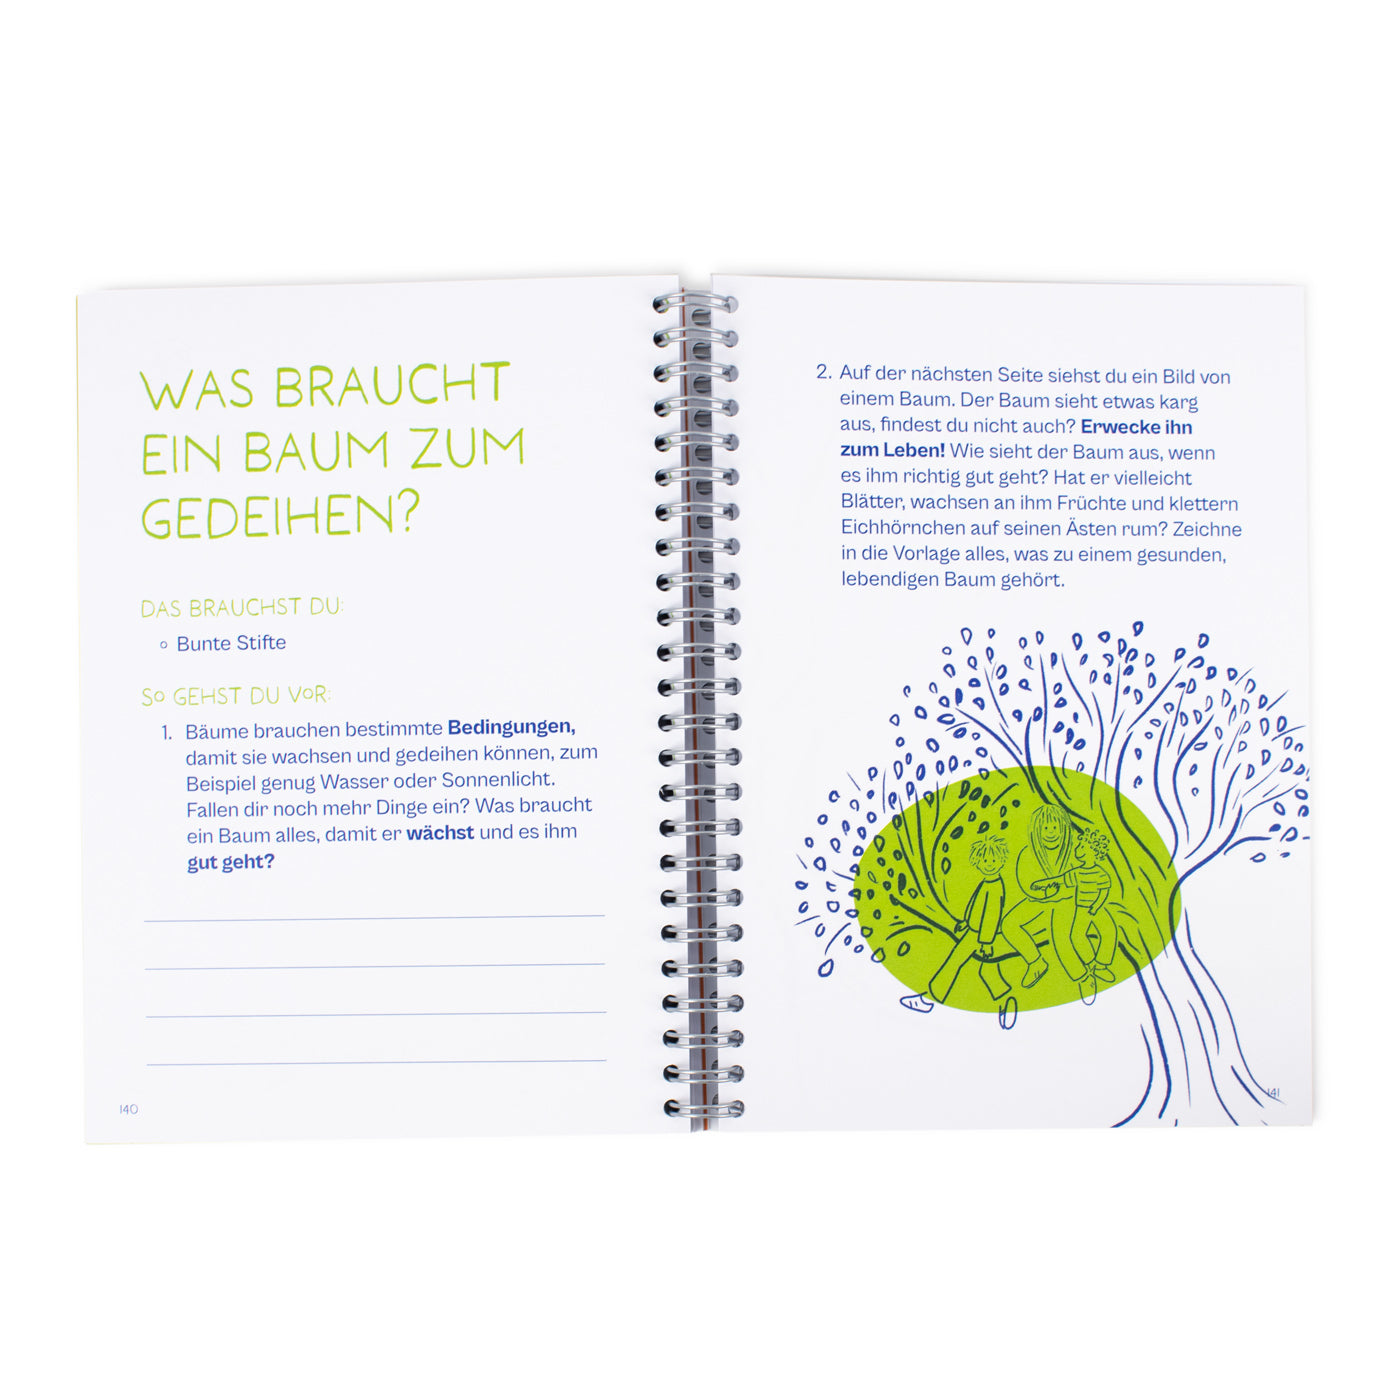 WAS BRAUCHT
EIN BAUM ZUM
GEDEIHEN?
DAS BRAUCHST DU:
Bunte Stifte
SO GEHST DU VOR:
1. Bäume brauchen bestimmte Bedingungen,
damit sie wachsen und gedeihen können, zum
Beispiel genug Wasser oder Sonnenlicht.
Fallen dir noch mehr Dinge ein? Was braucht
ein Baum alles, damit er wächst und es ihm
gut geht?
140
2. Auf der nächsten Seite siehst du ein Bild von
einem Baum. Der Baum sieht etwas karg
aus, findest du nicht auch? Erwecke ihn
zum Leben! Wie sieht der Baum aus, wenn
es ihm richtig gut geht? Hat er vielleicht
Blätter, wachsen an ihm Früchte und klettern
Eichhörnchen auf seinen Ästen rum? Zeichne
in die Vorlage alles, was zu einem gesunden,
lebendigen Baum gehört.
141